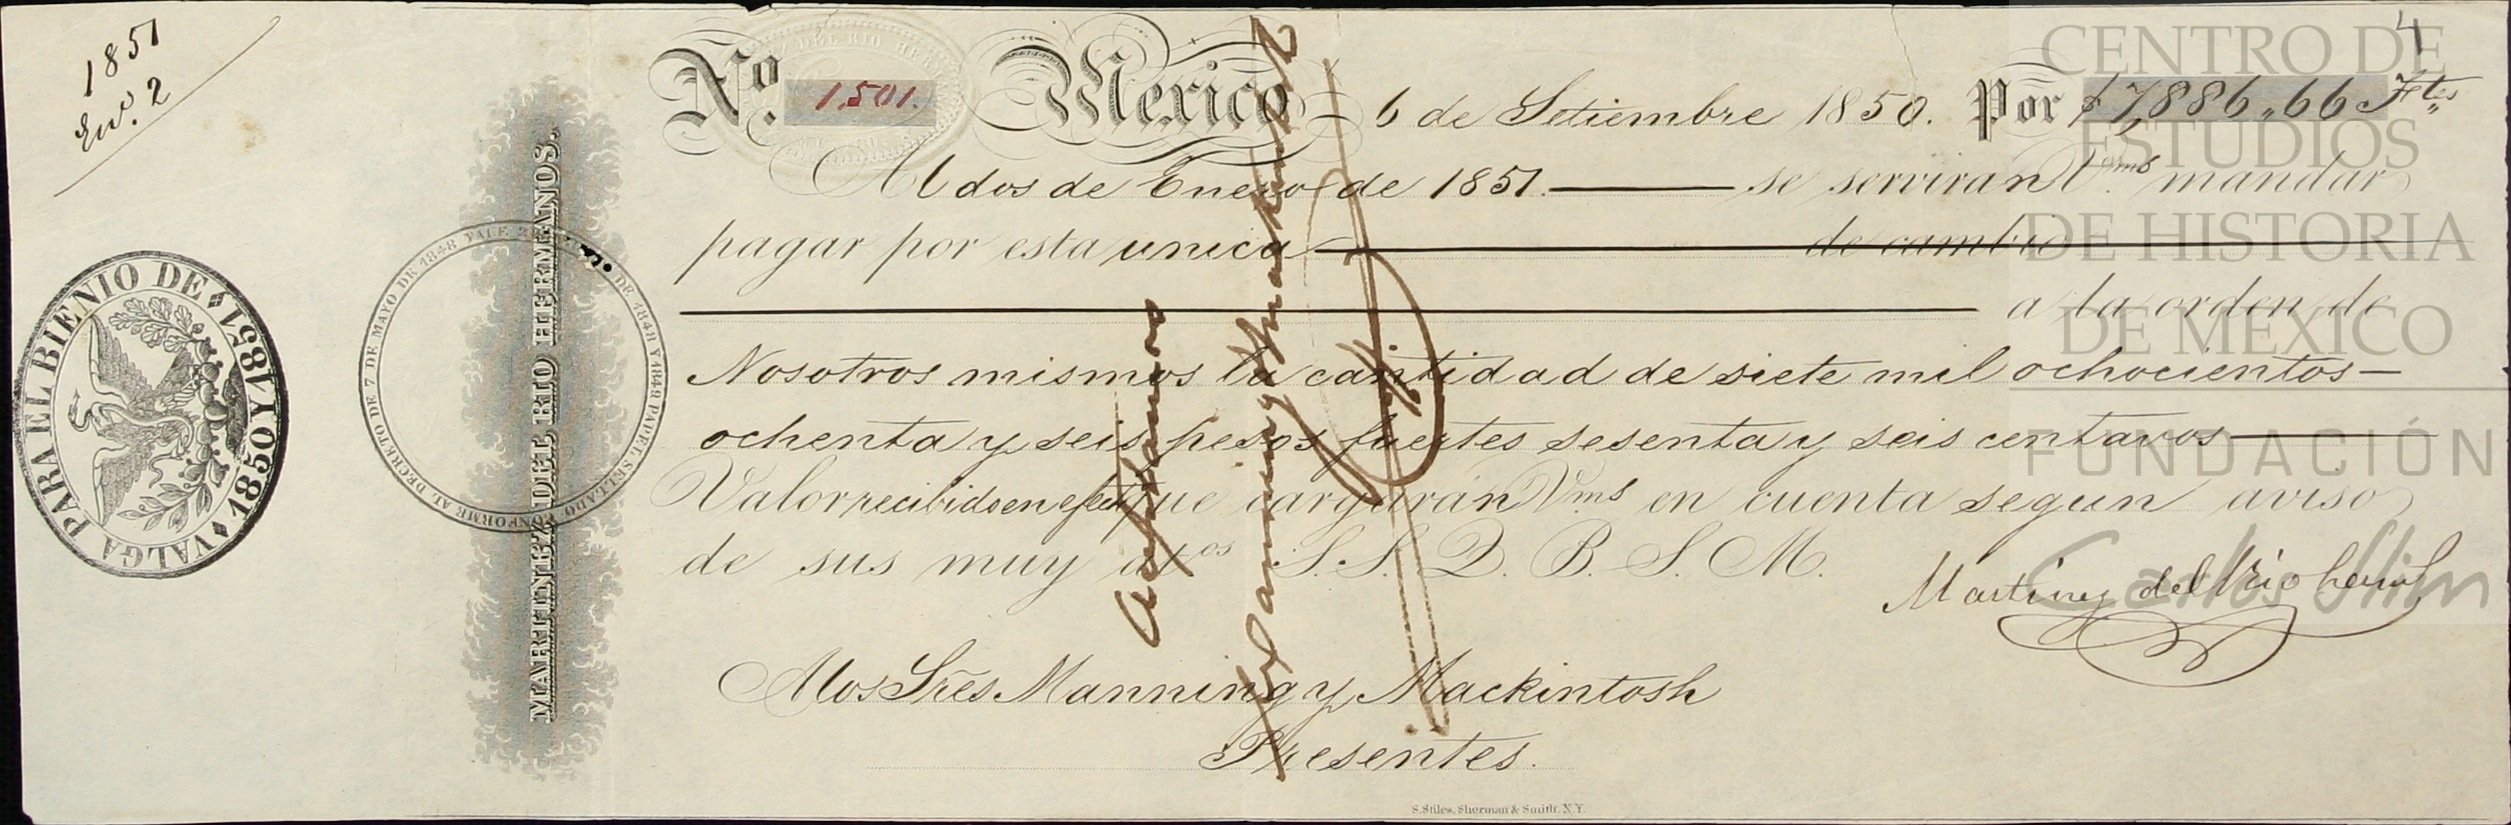 1851
En.º 2
No. 1,501. Mexico 6 de Setiembre 1850. Por $7,886,,66 Ftes,,
4
Al dos de Enero de 1851. se serviran V.ms mandar
pagar por esta unica de cambio
a la orden de
Nosotros mismos la cantidad de siete mil ochocientos
ochenta y seis pesos fuertes sesenta y seis centavos
Valor recibido en efect que cargarán Vms en cuenta segun aviso
de sus muy atos S. S. Q. B. S. M.
Martinez del Rio herms
A los Sres Manning y Mackintosh
Presentes.
S. Stiles, Sherman & Smith, N.Y.
Aceptamos
Manning y Mackintosh
MARTINEZ DEL RIO HERMANOS.
VALGA PARA EL BIENIO DE 1850 Y 1851
DE 1848 Y 1849 PAPEL SELLADO CONFORME AL DECRETO DE 7 DE MAYO DE 1848 VALE
DEL RIO HER
CENTRO DE
ESTUDIOS
DE HISTORIA
DE MÉXICO
FUNDACIÓN
Carlos Slim